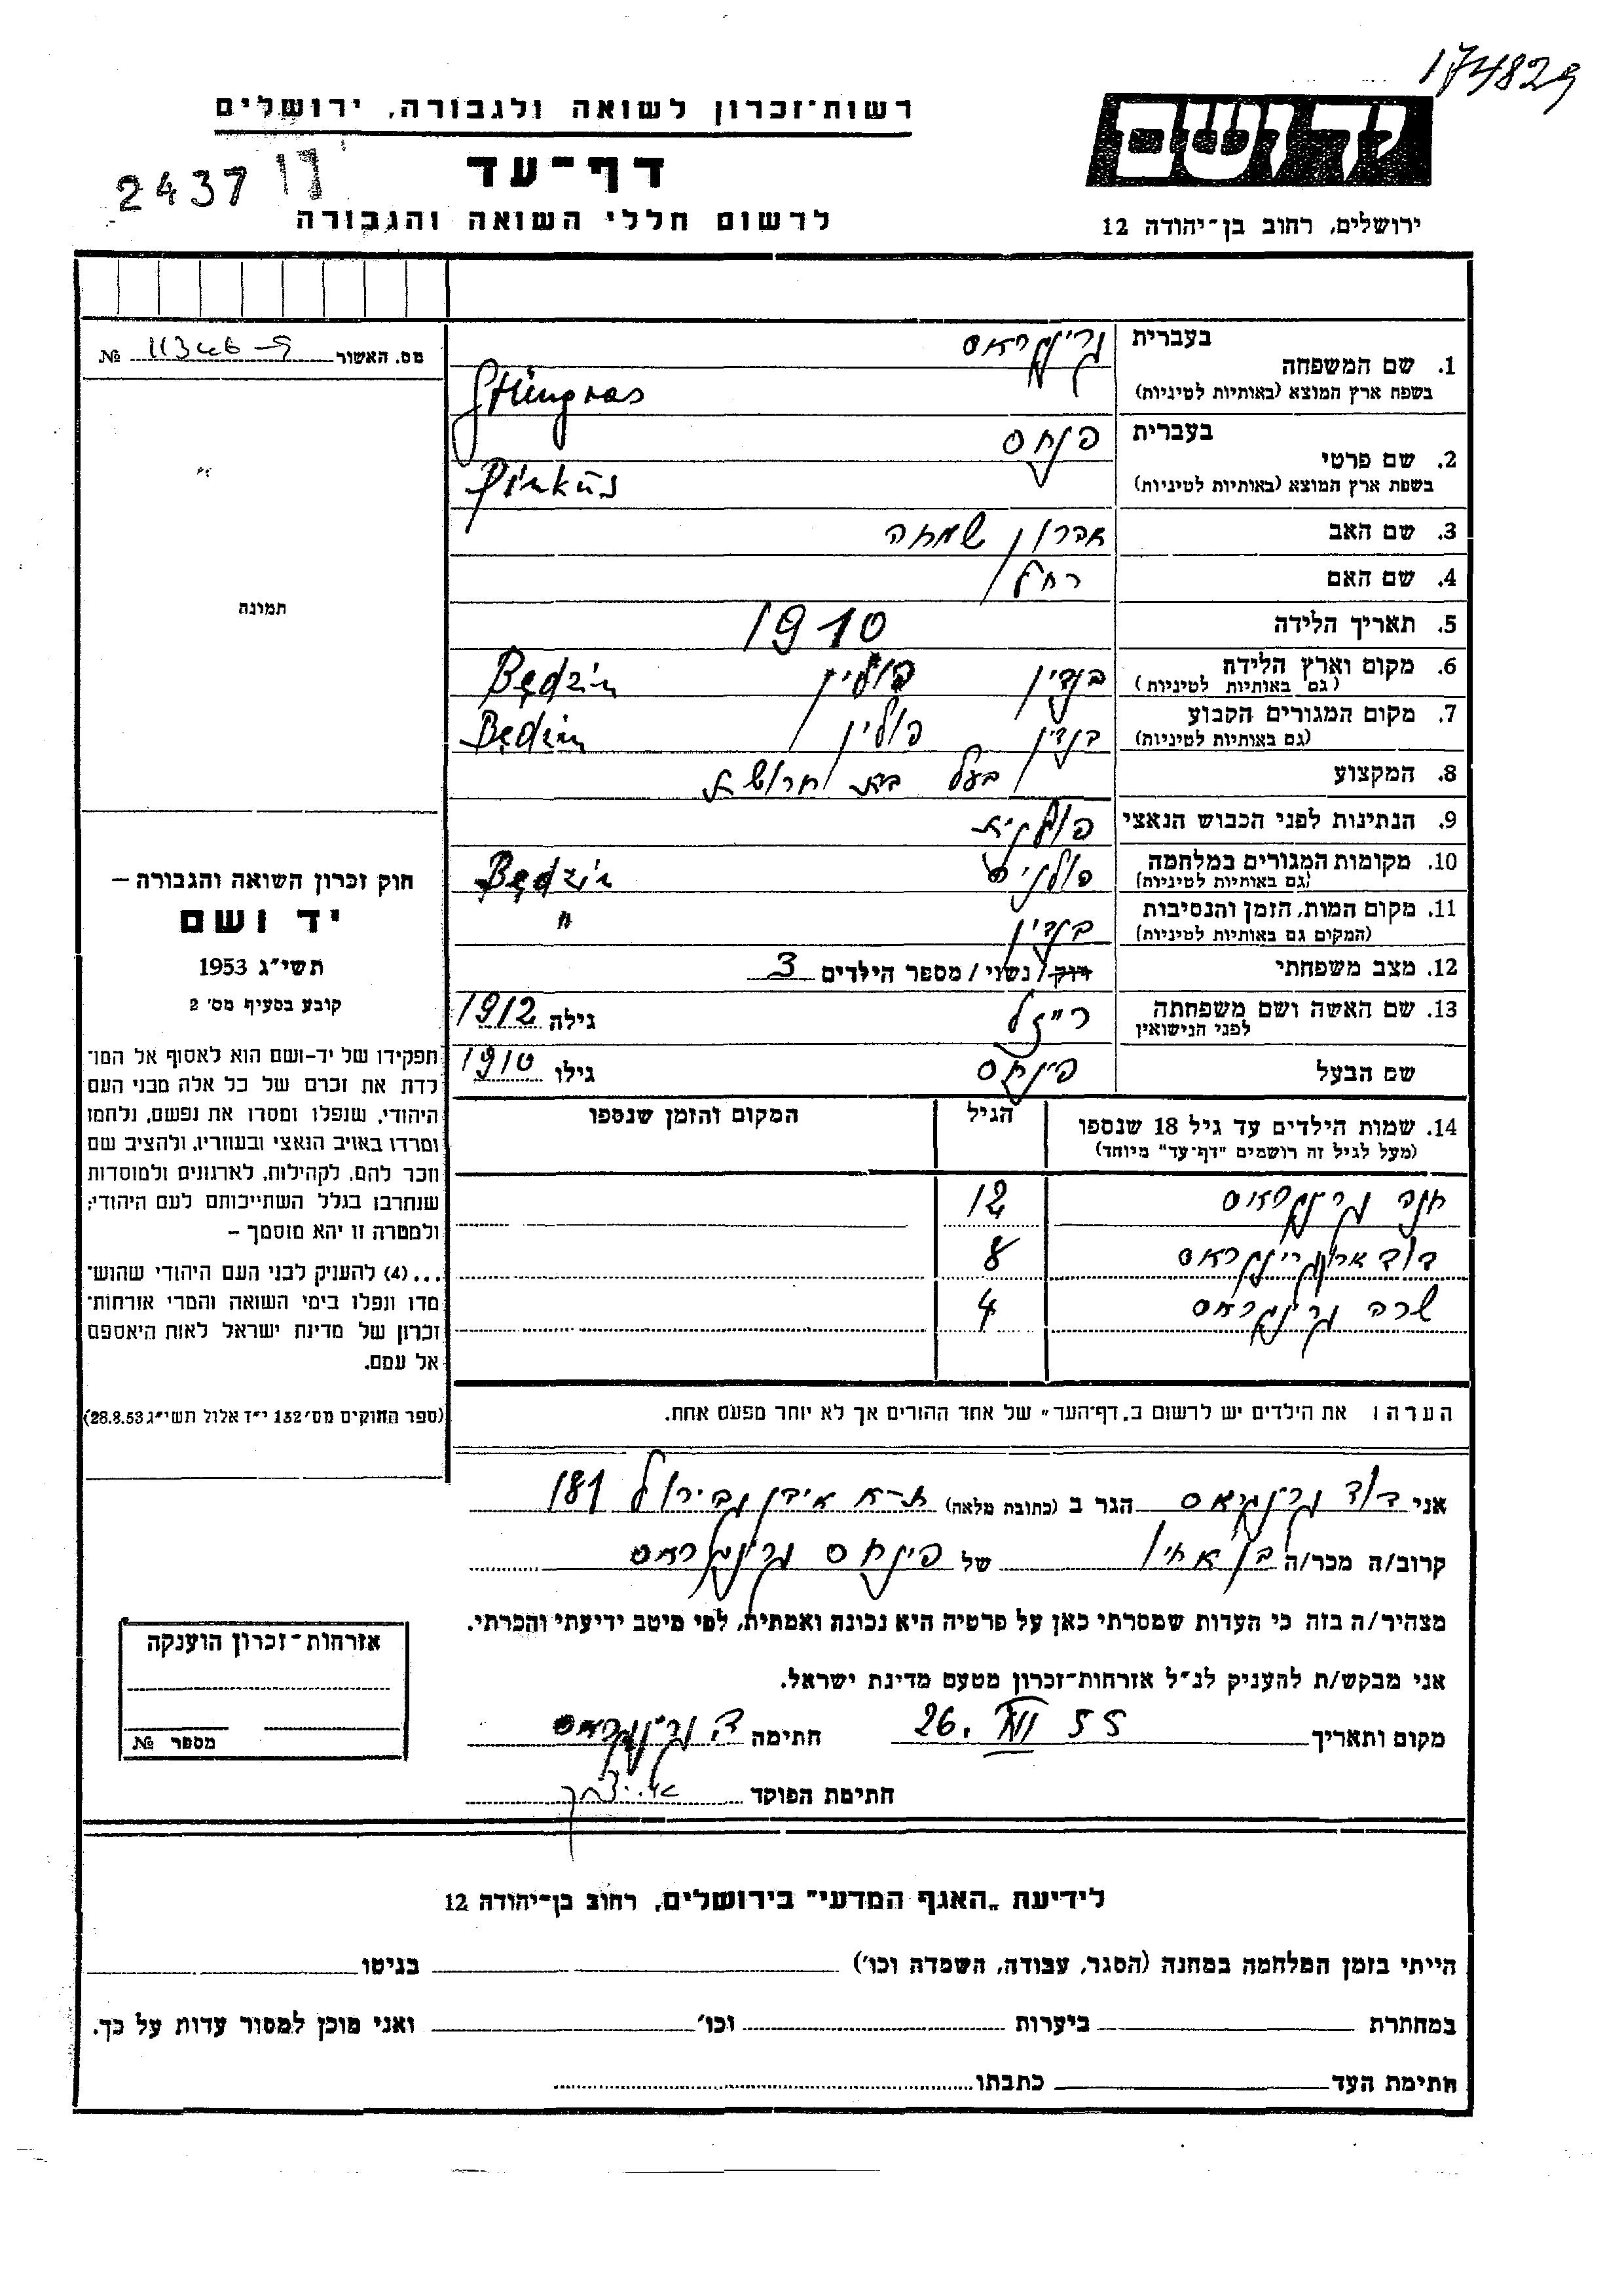 174829
ידושם
רשות-זכרון לשואה ולגבורה, ירושלים
דף-עד
2437
לרשום חללי השואה והגבורה
ירושלים, רחוב בן-יהודה 12
מס. האשור № 
תמונה
חוק זכרון השואה והגבורה –
יד ושם
תשי"ג 1953
קובע בסעיף מס' 2
תפקידו של יד-ושם הוא לאסוף אל המו־
לדת את זכרם של כל אלה מבני העם
היהודי, שנפלו ומסרו את נפשם, נלחמו
ומרדו באויב הנאצי ובעוזריו, ולהציב שם
וזכר להם, לקהילות, לארגונים ולמוסדות
שנחרבו בגלל השתייכותם לעם היהודי;
ולמטרה זו יהא מוסמך –
...(4) להעניק לבני העם היהודי שהוש־
מדו ונפלו בימי השואה והמרי אזרחות־
זכרון של מדינת ישראל לאות היאספם
אל עמם.
(ספר החוקים מס' 132 י"ז אלול תשי"ג 28.8.53)
בעברית גרינגראס
1. שם המשפחה
בשפת ארץ המוצא (באותיות לטיניות) Grüngras
בעברית פנחס
2. שם פרטי
בשפת ארץ המוצא (באותיות לטיניות) Pinkus
3. שם האב אהרון שמחה
4. שם האם רחל
5. תאריך הלידה 1910
6. מקום וארץ הלידה בנדין פולין Będzin
(גם באותיות לטיניות)
7. מקום המגורים הקבוע בנדין פולין Będzin
(גם באותיות לטיניות)
8. המקצוע בעל בית חרושת
9. הנתינות לפני הכבוש הנאצי פולנית
10. מקומות המגורים במלחמה Będzin
(גם באותיות לטיניות)
11. מקום המות, הזמן והנסיבות בנדין "
(המקום גם באותיות לטיניות)
12. מצב משפחתי רווק/ נשוי/ מספר הילדים 3
13. שם האשה ושם משפחתה לפני הנישואין רייזל גילה 1912
שם הבעל פינחס גילו 1910
14. שמות הילדים עד גיל 18 שנספו הגיל המקום והזמן שנספו
(מעל לגיל זה רושמים "דף-עד" מיוחד)
חנה גרינגראס 12
דוד ארון גרינגראס 8
שרה גרינגראס 4
הערה: את הילדים יש לרשום ב„דף-העד" של אחד ההורים אך לא יותר מפעם אחת.
אני דוד גרינגראס הגר ב (כתובת מלאה) ת-א אבן גבירול 181
קרוב/ה מכר/ה בן אחיו של פינחס גרינגראס
מצהיר/ה בזה כי העדות שמסרתי כאן על פרטיה היא נכונה ואמתית, לפי מיטב ידיעתי והכרתי.
אני מבקש/ת להעניק לנ"ל אזרחות-זכרון מטעם מדינת ישראל.
מקום ותאריך 26. VII 55 חתימה ד גרינגראס
חתימת הפוקד
אזרחות-זכרון הוענקה
מספר №
לידיעת „האגף המדעי" בירושלים, רחוב בן-יהודה 12
הייתי בזמן המלחמה במחנה (הסגר, עבודה, השמדה וכו') בגיטו
במחתרת ביערות וכו' ואני מוכן למסור עדות על כך.
חתימת העד כתבתו